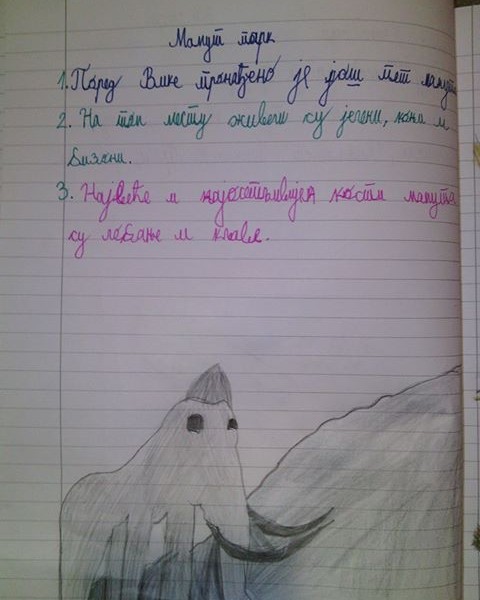 Мамут парк
1. Поред Вике пронађено је још пет мамута
2. На том месту живели су јелени, коњи и
бизони.
3. Највеће и најосетљивије кости мамута
су лобање и кљове.